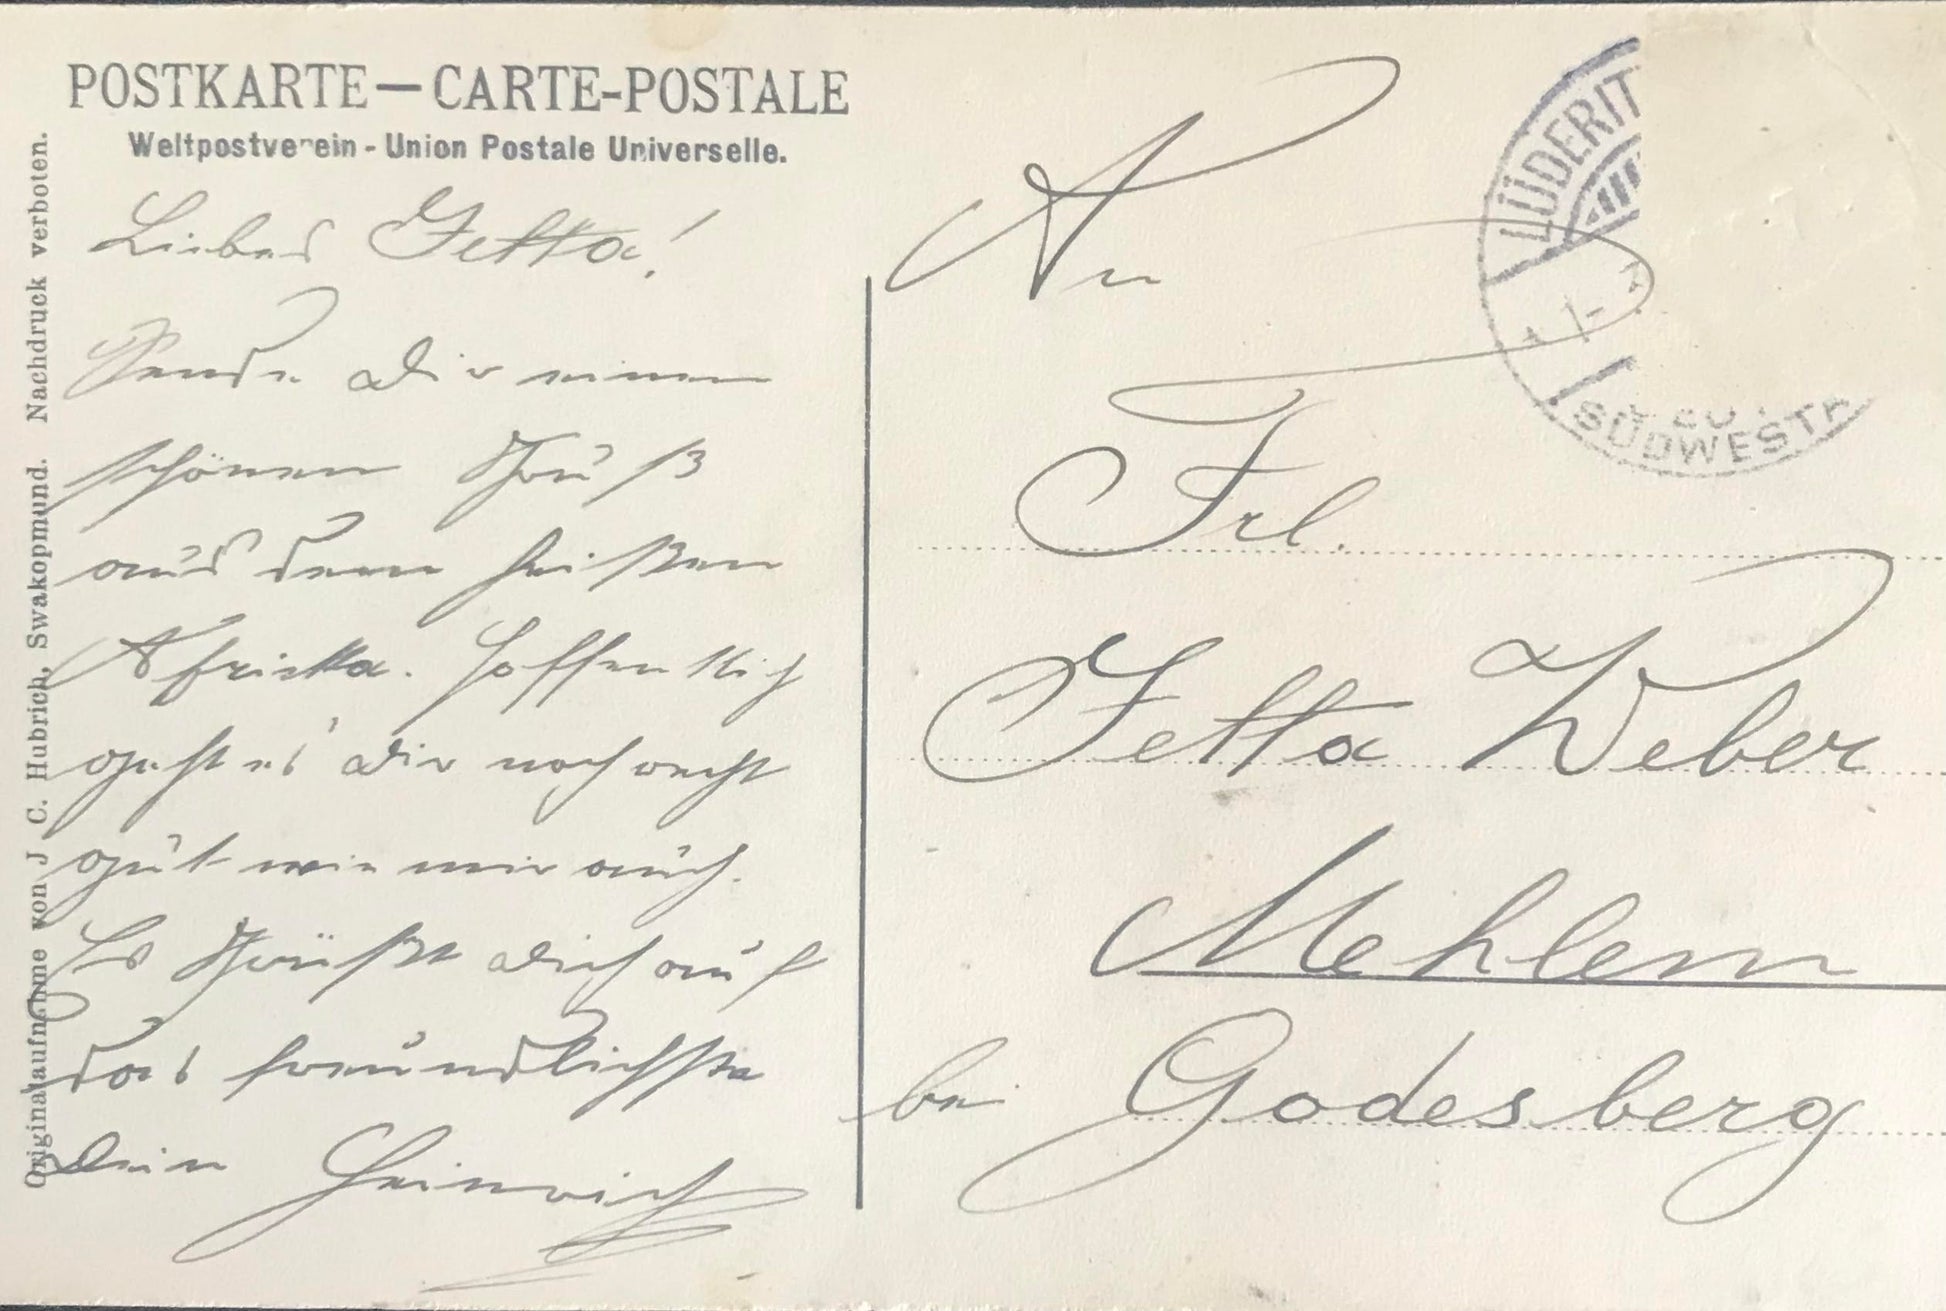 POSTKARTE — CARTE-POSTALE
Weltpostverein - Union Postale Universelle.
Originalaufnahme von J C. Hubrich, Swakopmund. Nachdruck verboten.
Liebes Jetta!
Sende Dir einen
schönen Gruß
aus dem heißen
Afrika. Hoffentlich
geht es Dir noch recht
gut wie mir auch.
Es Grüßt Dich auf
das freundlichste
Dein Heinrich
An
Frl.
Jetta Weber
Mehlem
bei Godesberg
LÜDERIT
SÜDWESTA